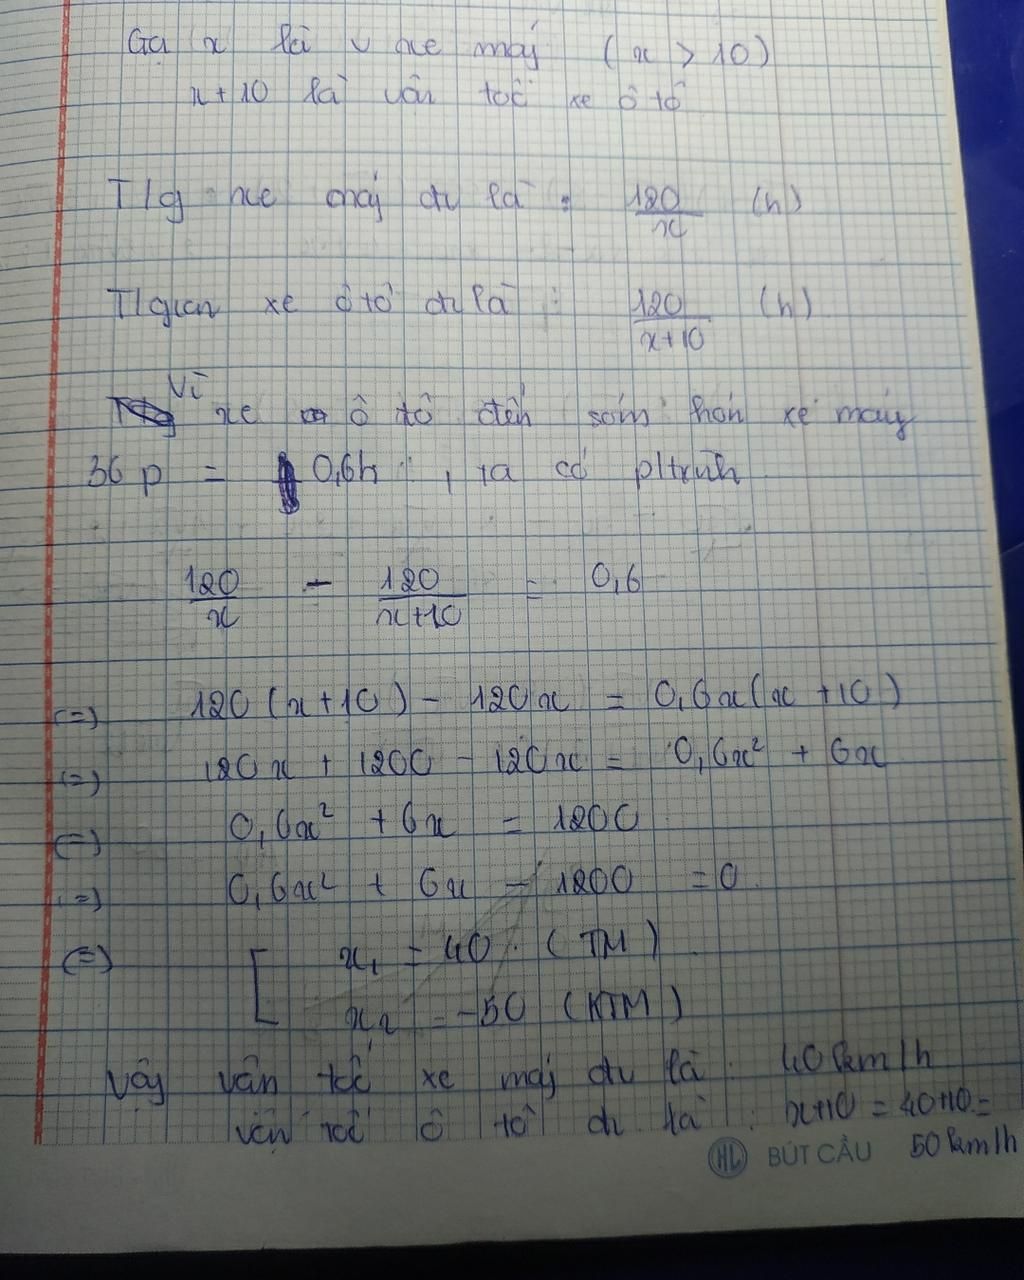 Gọi x là v xe máy (x > 10)
x+10 là vận tốc xe ô tô
T/g xe máy đi là : 120/x (h)
T/gian xe ô tô đi là : 120/(x+10) (h)
Vì xe ô tô đến sớm hơn xe máy
36 p = 0,6h , ta có p/trình
120/x - 120/(x+10) = 0,6
(=) 120(x+10) - 120x = 0,6x(x+10)
(=) 120x + 1200 - 120x = 0,6x² + 6x
(=) 0,6x² + 6x = 1200
(=) 0,6x² + 6x - 1200 = 0
(=) [ x₁ = 40 (TM)
x₂ = -50 (KTM)
Vậy vận tốc xe máy đi là : 40km/h
vận tốc ô tô đi là : x+10 = 40+10 =
50km/h
HL BÚT CẦU